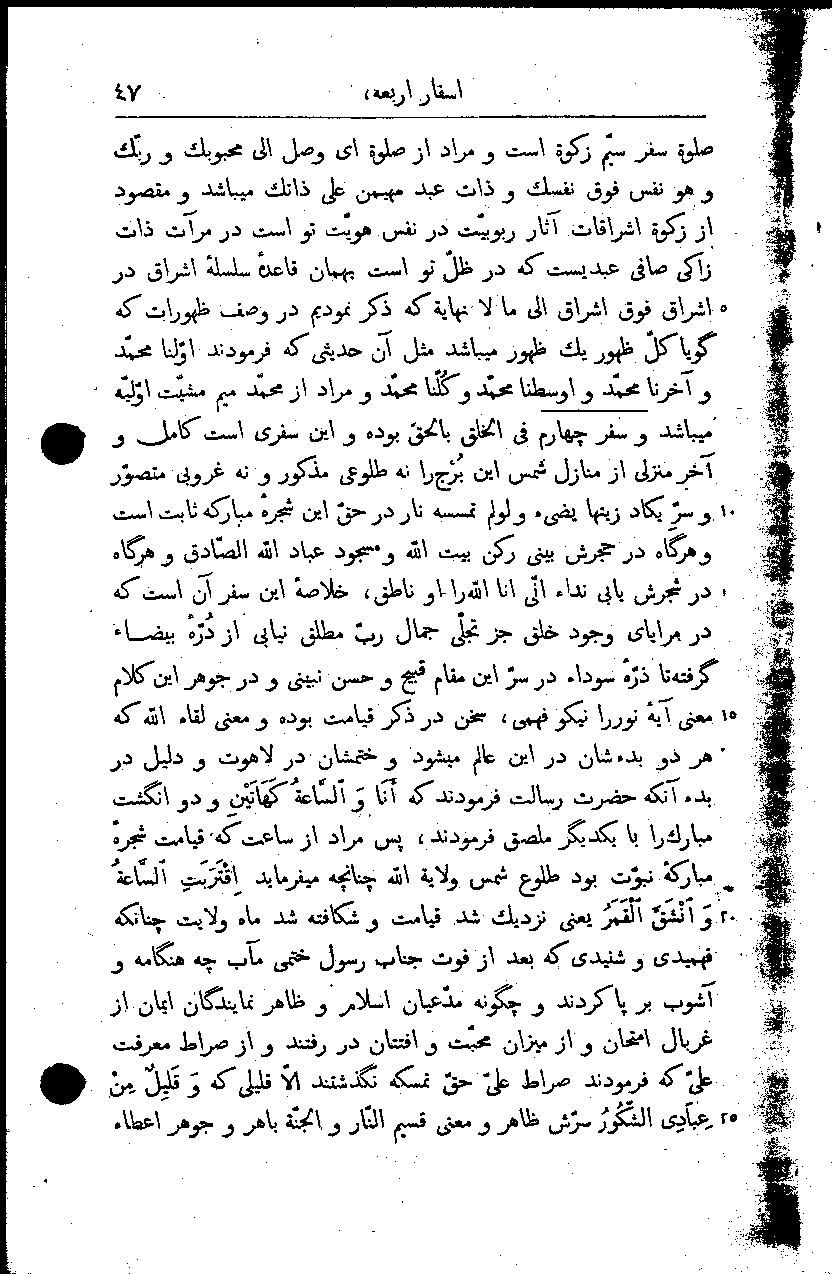 اسفار اربعه، ٤٧
صلوة سفر سیّم زکوة است و مراد از صلوة ای وصل الی محبوبك و ربّك
و هو نفس فوق نفسك و ذات عبد مهیمن علی ذاتك میباشد و مقصود
از زکوة اشراقات آثار ربوبیّت در نفس هویّت تو است در مرآت ذات
زاکی صافی عبدیست که در ظلّ تو است بهمان قاعدهٔ سلسلهٔ اشراق در
٥ اشراق فوق اشراق الی ما لا نهایة که ذکر نمودیم در وصف ظهورات که
گویا کلّ ظهور یك ظهور میباشد مثل آن حدیثی که فرمودند اوّلنا محمّد
و آخرنا محمّد و اوسطنا محمّد و کُلّنا محمّد و مراد از محمّد میم مشیّت اوّلیّه
میباشد و سفر چهارم فی الخلق بالحقّ بوده و این سفری است کامل و
آخر منزلی از منازل شمس این بُرْج‌را نه طلوعی مذکور و نه غروبی متصوّر
١٠ و سرّ یکاد زیتها یضیء و لولم تمسسه نار در حقّ این شجرهٔ مبارکه ثابت است
و هرگاه در حجرش بینی رکن بیت الله و مسجود عباد الله الصّادق و هرگاه
در شجرش یابی نداء انّی انا الله‌را او ناطق، خلاصهٔ این سفر آن است که
در مرایای وجود خلق جز تجلّی جمال ربّ مطلق نیابی از دُرّهٔ بیضاء
گرفته تا ذرّهٔ سوداء در سرّ این مقام قبیح و حسن نبینی و در جوهر این کلام
١٥ معنی آیهٔ نوررا نیکو فهمی، سخن در ذکر قیامت بوده و معنی لقاء الله که
هر دو بدءشان در این عالم میشود و ختمشان در لاهوت و دلیل در
بدء آنکه حضرت رسالت فرمودند که أَنَا وَ ٱلسَّاعَةُ کَهَاتَیْنِ و دو انگشت
مبارك‌را با یکدیگر ملصق فرمودند، پس مراد از ساعت که قیامت شجرهٔ
مبارکهٔ نبوّت بود طلوع شمس ولایة الله چنانچه میفرماید اِقْتَرَبَتِ ٱلسَّاعَةُ
٢٠ وَ ٱنْشَقَّ ٱلْقَمَرُ یعنی نزدیك شد قیامت و شکافته شد ماه ولایت چنانکه
فهمیدی و شنیدی که بعد از فوت جناب رسول ختمی مآب چه هنگامه و
آشوب بر پا کردند و چگونه مدّعیان اسلام و ظاهر نمایندگان ایمان از
غربال امتحان و از میزان محبّت و افتتان در رفتند و از صراط معرفت
علیّ که فرمودند صراط علیّ حقّ نمسکه نگذشتند الّا قلیلی که وَ قَلِیلٌ مِنْ
٢٥ عِبَادِیَ الشَّکُورُ سرّش ظاهر و معنی قسیم النّار و الجنّة باهر و جوهر اعطاء